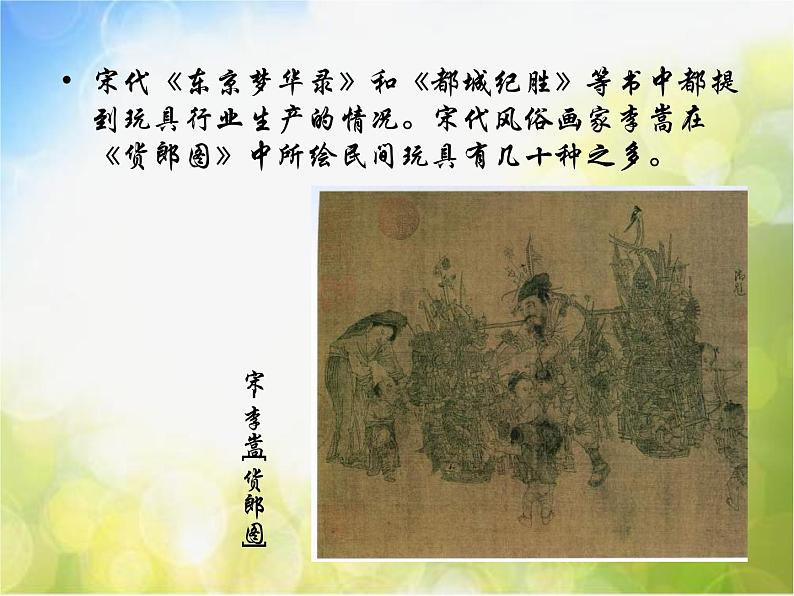 • 宋代《东京梦华录》和《都城纪胜》等书中都提
到玩具行业生产的情况。宋代风俗画家李嵩在
《货郎图》中所绘民间玩具有几十种之多。
宋·李嵩[货郎图]